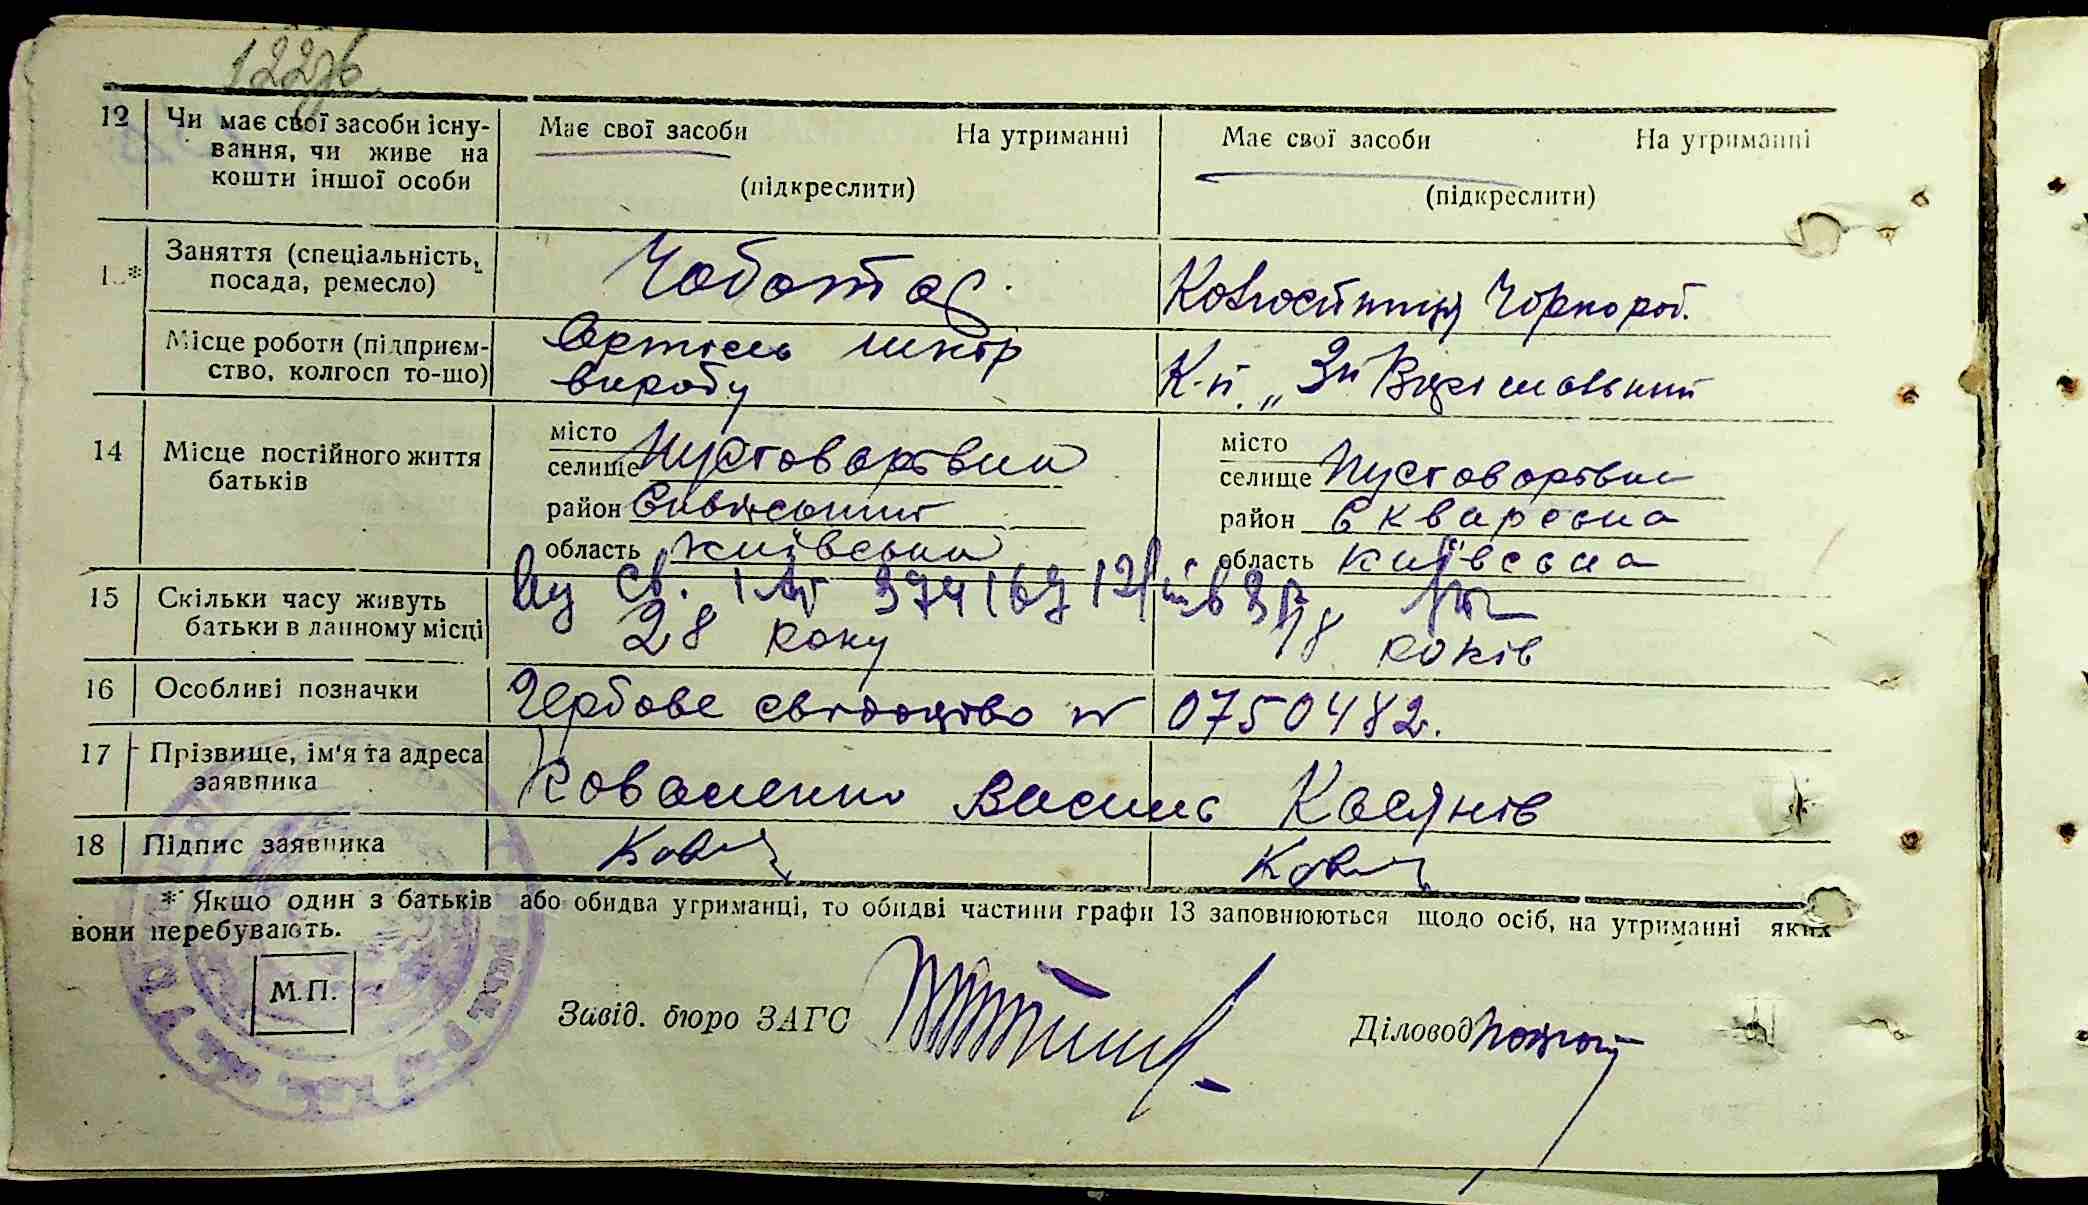 122
12 Чи має свої засоби існу-
вання, чи живе на
кошти іншої особи
Має свої засоби На утриманні
(підкреслити)
Має свої засоби На утриманні
(підкреслити)
Заняття (спеціальність,
посада, ремесло)
Чоботар.
Колгоспниця Чорнороб.
Місце роботи (підприєм-
ство, колгосп то-що)
Артіль шкір
виробу
К-п „
14 Місце постійного життя
батьків
місто
селище Пустоварівка
район Сквирський
область Київська
місто
селище Пустоварівка
район Сквирська
область Київська
15 Скільки часу живуть
батьки в данному місці
28 року
18 років
16 Особливі позначки
Гербове свідоцтво № 0750482.
17 Прізвище, ім'я та адреса
заявника
Коваленко Василь Касянів
18 Підпис заявника
* Якщо один з батьків або обидва утриманці, то обидві частини графи 13 заповнюються щодо осіб, на утриманні яких
вони перебувають.
М.П.
Завід. бюро ЗАГС
Діловод